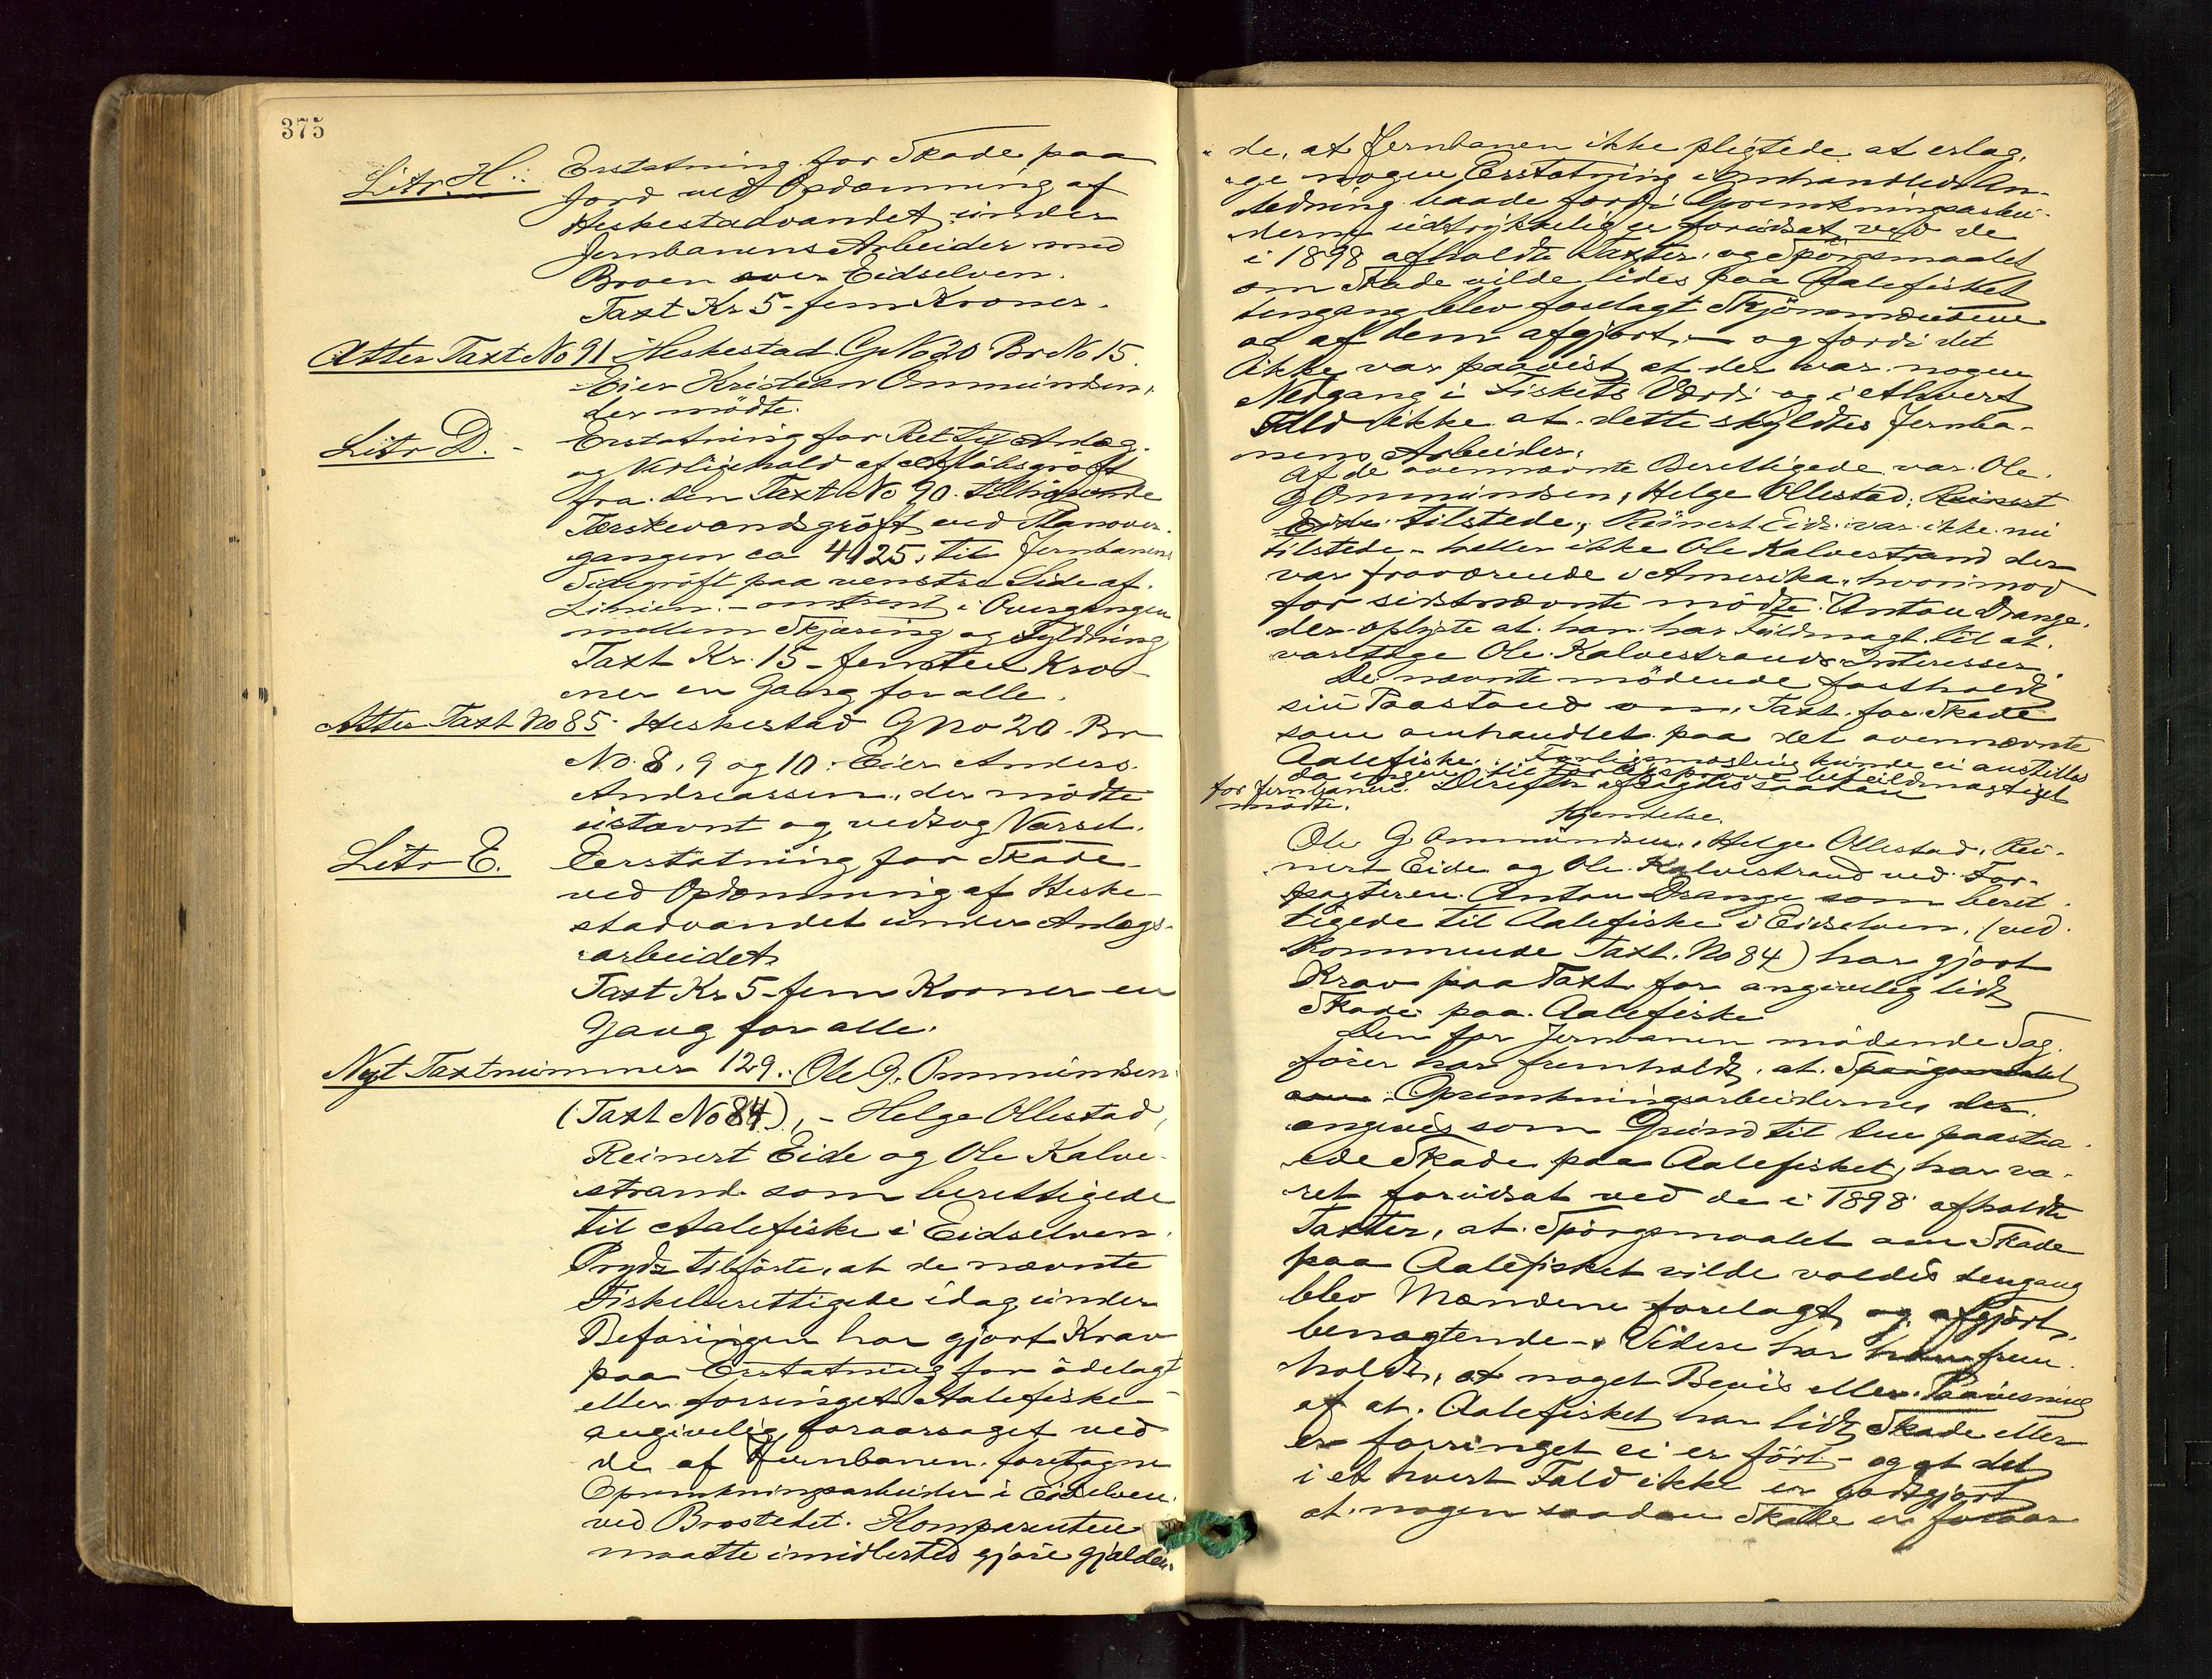 375
Litr. H.: Erstatning for Skade paa
Jord ved Opdæmning af
Heskestadvandet under
Jernbanens Arbeider med
Broen over Eidselven.
Taxt Kr 5 - fem Kroner.
Atter Taxt No 91 Heskestad G No 20 Br No 15.
Eier Kristian Ommundsen,
der mödte.
Litr D. - Erstatning for Ret til Anlæg
og Vedligehold af Aflöbsgröft
fra den Taxt No 90 tilhörende
Terskevandsgröft ved Planover-
gangen ca 4125, til Jernbanens
Sidegröft paa venstre Side af
Linien. - omtrent i Overgangen
mellem Skjæring og Fyldning
Taxt Kr. 15 - femten Kro-
ner en Gang for alle.
Atter Taxt No 85. Heskestad G No 20. Br
No. 8, 9 og 10. Eier Anders
Andreassen, der mödte
ustævnt og vedtog Varsel.
Litr E. Eerstatning for Skade
ved Opdæmning af Heske-
stadvandet under Anlægs-
arbeidet.
Taxt Kr 5 - fem Kroner en
Gang for alle.
Nyt Taxtnummer 129.: Ole G. Ommundsen
(Taxt No 84), - Helge Ollestad,
Reinert Eide og Ole Kalve-
strand som berettigede
til Aalefiske i Eidselven.
Prydz tilförte, at de nævnte
Fiskeberettigede idag under
Befaringen har gjort Krav
paa Erstatning for ödelagt
eller forringet Aalefiske -
angivelig foraarsaget ved
de af Jernbanen foretagne
Oprenskningsarbeider i Eidselven
ved Brostedet. Komparenten
maatte imidlertid gjöre gjælden-
de, at Jernbanen ikke pligtede at erlæg-
ge nogen Erstatning i omhandlede An-
ledning baade fordi Oprenskningsarbei-
derne udtrykkelig er forudsat ved de
i 1898 afholdte Taxter, og Spörgsmaalet
om Skade vilde lides paa Aalefisket
dengang blev forelagt Skjönsmændene
og af dem afgjort, - og fordi det
ikke var paavist at der var nogen
Nedgang i Fiskets Værdi og i ethvert
Fald ikke at dette skyldtes Jernba-
nens Arbeider.
Af de ovennævnte Berettigede var Ole
G Ommundsen, Helge Ollestad, Reinert
Eide tilstede; Reinert Eide var ikke nu
tilstede - heller ikke Ole Kalvestrand der
var fraværende i Amerika, hvorimod
for sidstnævnte mödte Anton Drange,
der oplyste at han har Fuldmagt til at
varetage Ole Kalvestrands Interesser.
De nævnte mödende fastholdt
sin Paastand om Taxt for Skade
som omhandlet paa det ovennævnte
Aalefiske. Forligsmægling kunde ei anstilles
da ingen til Forligsprøve befuldmægtiget
for Jernbanen mödte. Derefter afsagdes saadan
Kjendelse.
Ole G. Ommundsen, Helge Ollestad, Rei-
nert Eide og Ole Kalvestrand ved For-
pagteren Anton Drange som beret-
tigede til Aalefiske i Eidselven, (ved-
kommende Taxt No 84) har gjort
Krav paa Taxt for angivelig lidt
Skade paa Aalefiske
Den for Jernbanen mödende Sag-
förer har fremholdt, at Spörgsmaalet
om Oprenskningsarbeiderne, der
angives som Grund til den paastaa-
ede Skade paa Aalefisket, har væ-
ret forudsat ved de i 1898 afholdte
Taxter, at Spörgsmaalet om Skade
paa Aalefisket vilde voldes dengang
blev Mændene forelagt og afgjort
benægtende -. Videre har han frem-
holdt, at noget Bevis eller Paavisning
af at Aalefisket har lidt Skade eller
er forringet ei er fört - og at det
i et hvert Fald ikke er godtgjort
at nogen saadan Skade er foraar-